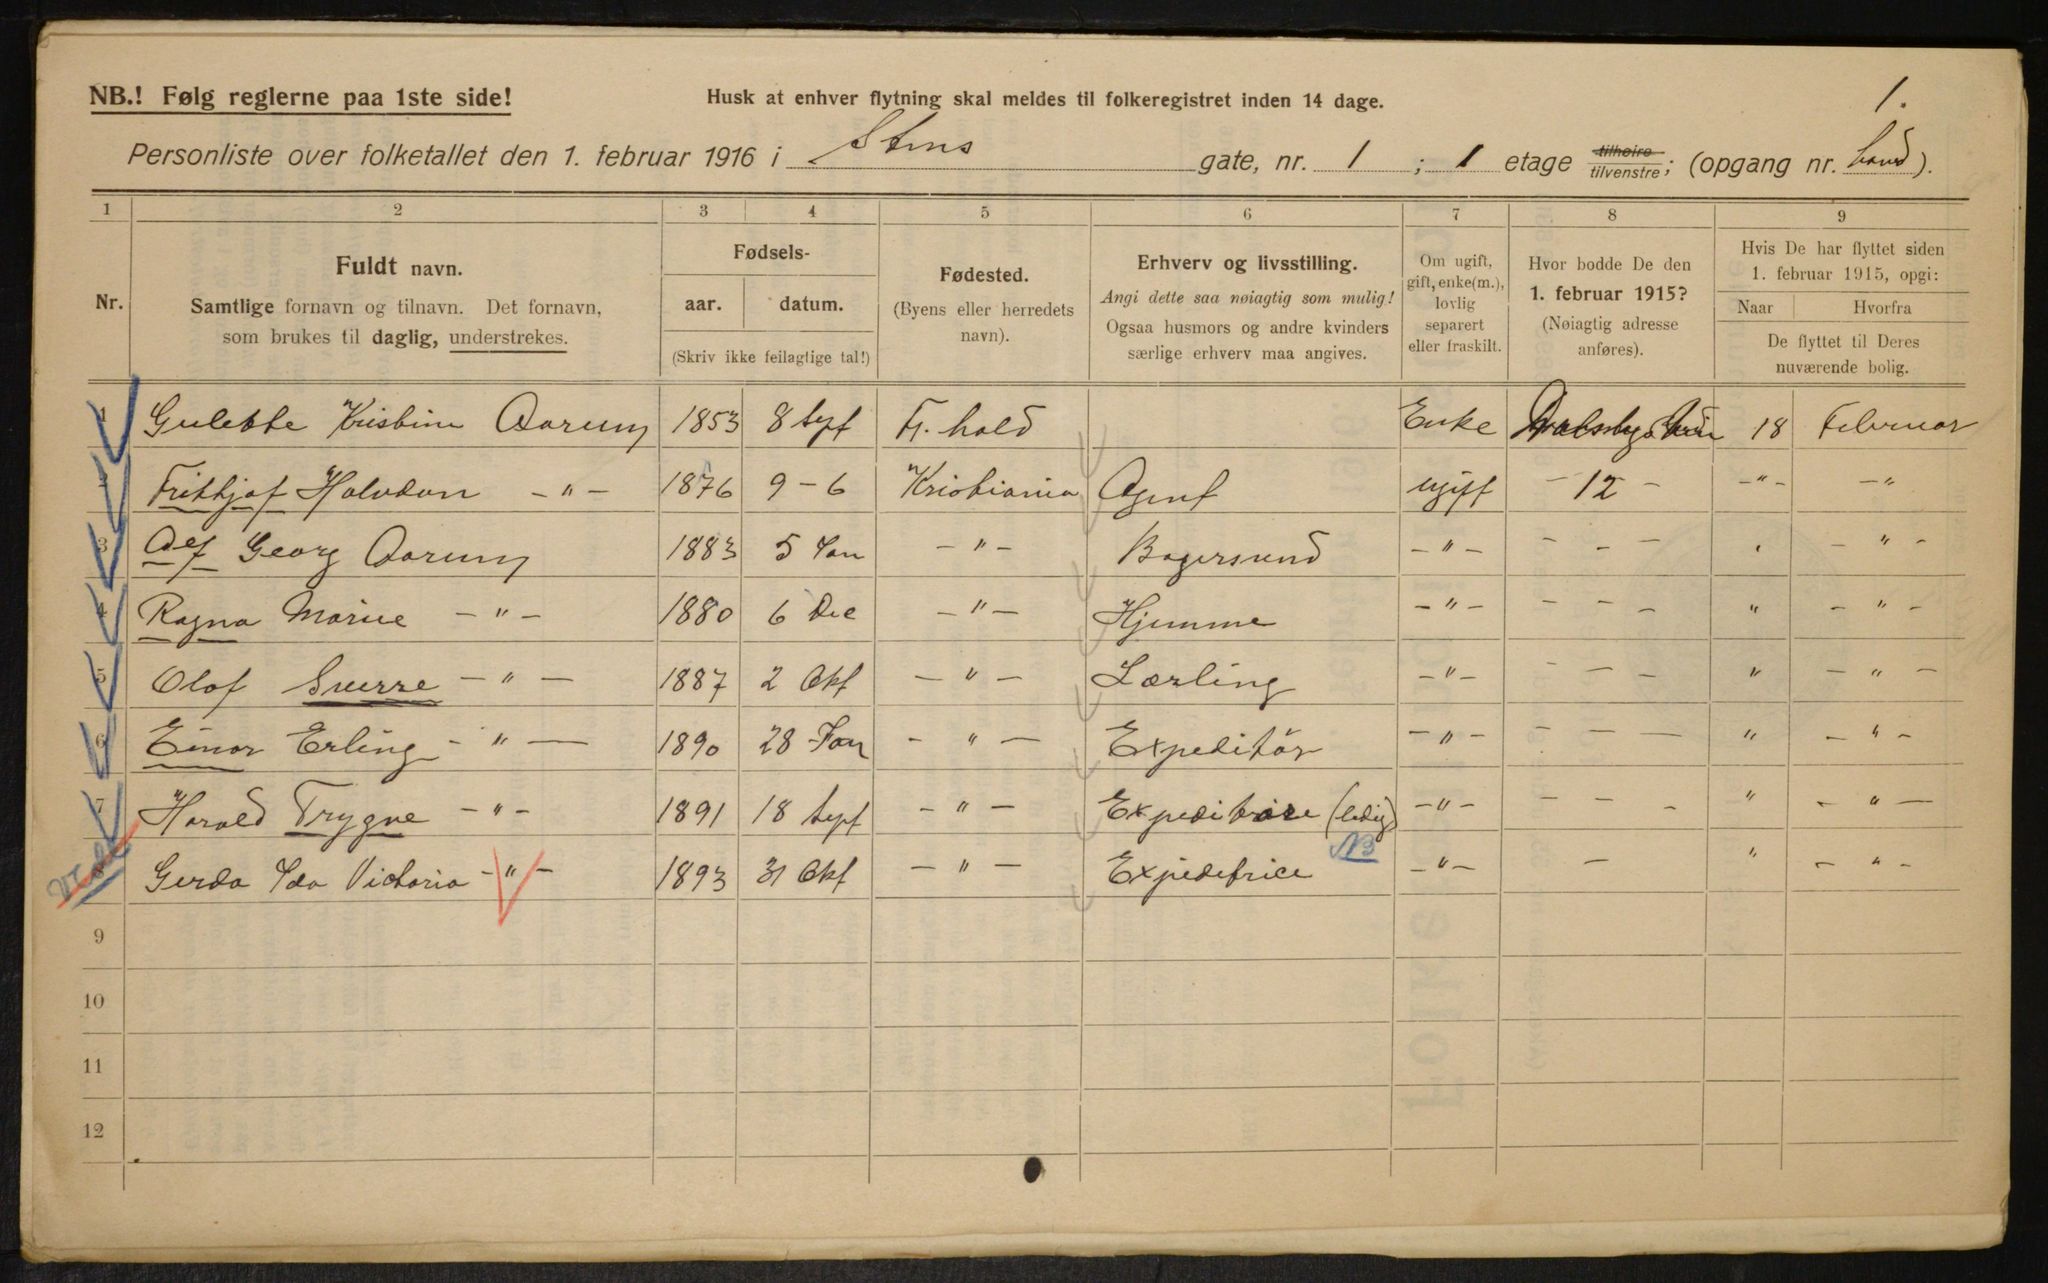 NB.! Følg reglerne paa 1ste side!
Husk at enhver flytning skal meldes til folkeregistret inden 14 dage.
1.
Personliste over folketallet den 1. februar 1916 i Stens gate, nr. 1 ; 1 etage tilhøire tilvenstre; (opgang nr. ).
1 2 3 4 5 6 7 8 9
Nr.
Fuldt navn.
Samtlige fornavn og tilnavn. Det fornavn,
som brukes til daglig, understrekes.
Fødsels-
aar. datum.
(Skriv ikke feilagtige tal!)
Fødested.
(Byens eller herredets
navn).
Erhverv og livsstilling.
Angi dette saa nøiagtig som mulig!
Ogsaa husmors og andre kvinders
særlige erhverv maa angives.
Om ugift,
gift, enke(m.),
lovlig
separert
eller fraskilt.
Hvor bodde De den
1. februar 1915?
(Nøiagtig adresse
anføres).
Hvis De har flyttet siden
1. februar 1915, opgi:
Naar Hvorfra
De flyttet til Deres
nuværende bolig.
1 Gulette Kristine Aarum 1853 8 Sept Fr. hald Enke 18 Februar
2 Frithjof Halvdan -"- 1876 9-6 Kristiania Agent ugift - 12 - -"- -"
3 Georg Aarum 1883 5 Jan -"- Bagersvend -"- - - - -"-
4 Ragna Marie -"- 1880 6 Dec -"- Hjemme -"- - - - " -"-
5 Olaf Sverre -"- 1887 2 Okt -"- Lærling -"- - - - " -"-
6 Einar Erling -"- 1890 28 Jan -"- Expeditör -"- - - - " -"-
7 Harald Trygve -"- 1891 18 Sept -"- (ledig) -"- - - - " -"-
8 Gerda Ida Victoria -"- 1893 31 Okt -"- Expeditrice NB -"- - " -"-
9
10
11
12